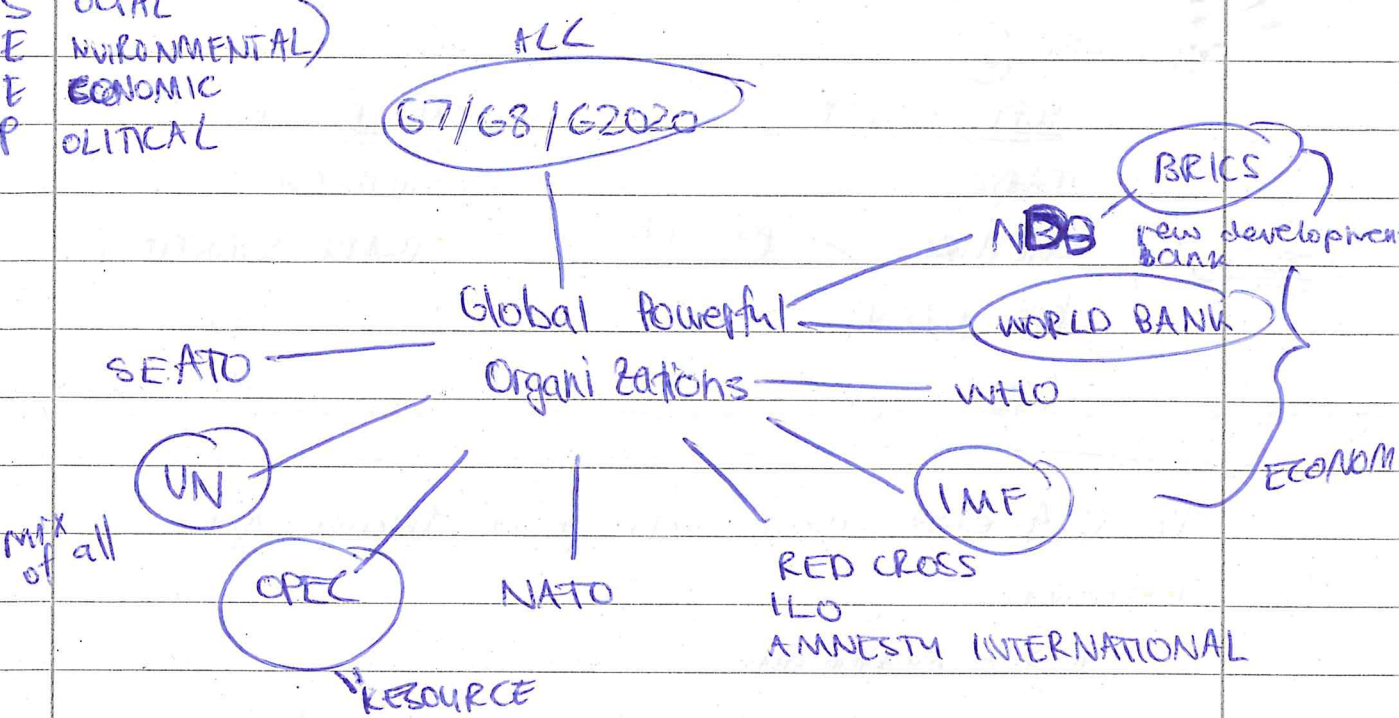 S OCIAL
E NVIRONMENTAL)
E ECONOMIC
P OLITICAL
ALL
G7/G8/G2020
BRICS
NDB new developmen
bank
Global Powerful
Organizations
WORLD BANK
SEATO
WHO
UN
IMF
ECONOM
mix
of all
OPEC
NATO
RED CROSS
ILO
AMNESTY INTERNATIONAL
RESOURCE